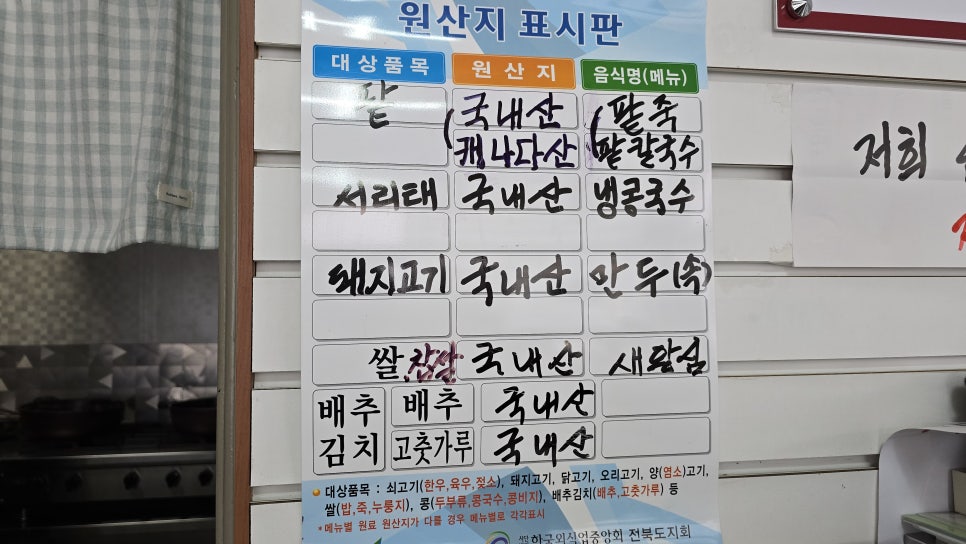 원산지 표시판
대상품목 원산지 음식명(메뉴)
팥 (국내산 (팥죽
캐나다산 팥칼국수
서리태 국내산 냉콩국수
돼지고기 국내산 만두(속)
쌀, 찹쌀 국내산 새알심
배추 배추 국내산
김치 고춧가루 국내산
대상품목 : 쇠고기(한우,육우,젖소), 돼지고기, 닭고기, 오리고기, 양(염소)고기,
쌀(밥,죽,누룽지), 콩(두부류,콩국수,콩비지), 배추김치(배추,고춧가루) 등
*메뉴별 원료 원산지가 다를 경우 메뉴별로 각각표시
한국외식업중앙회 전북도지회
저희